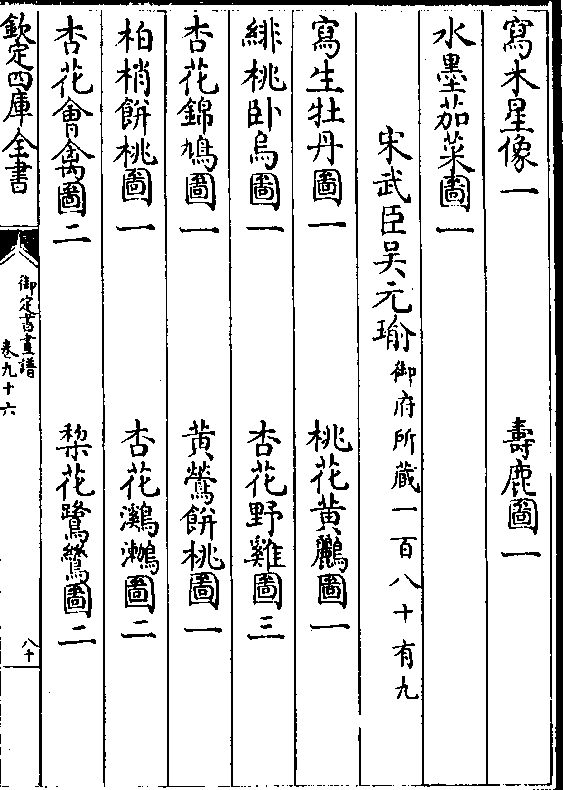 寫木星像一　壽鹿圖一
水墨茄菜圖一
宋武臣吴元瑜御府所藏一百八十有九
寫生牡丹圖一　桃花黃鸝圖一
緋桃卧烏圖一　杏花野雞圖三
杏花錦鳩圖一　黃鶯餅桃圖一
柏梢餅桃圖一　杏花鸂鷘圖二
杏花會禽圖二　棃花鷺鷥圖二
欽定四庫全書
御定書畫譜
卷九十六
八十